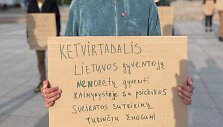 KETVIRTADALIS
LIETUVOS GYVENTOJŲ
NENORĖTŲ GYVENTI
KAIMYNYSTĖJE SU PSICHIKOS
SVEIKATOS SUTRIKIMŲ
TURINČIU ŽMOGUMI